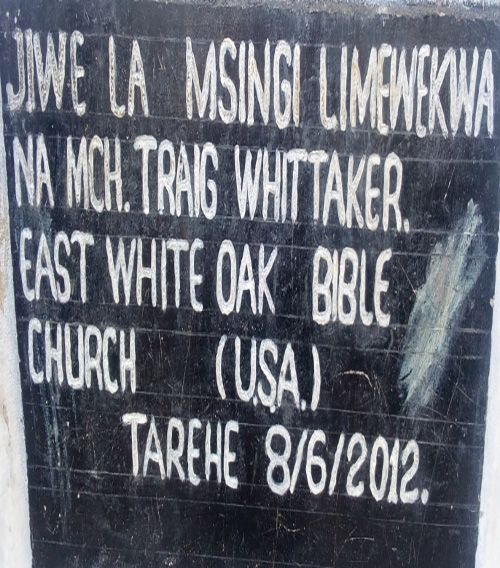 JIWE LA MSINGI LIMEWEKWA
NA MCH. TRAIG WHITTAKER.
EAST WHITE OAK BIBLE
CHURCH (U.S.A.)
TAREHE 8/6/2012.